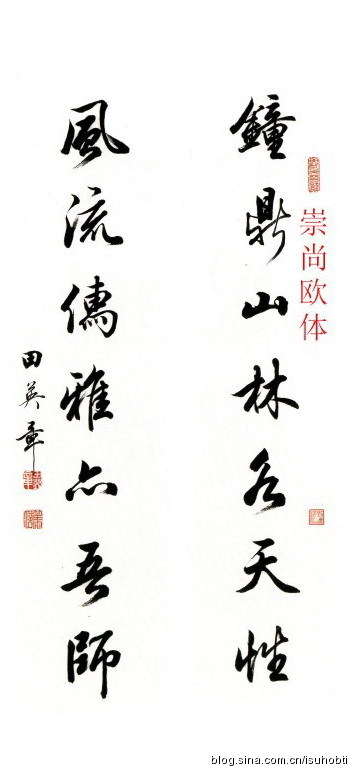 崇尚欧体
鐘鼎山林各天性
風流儒雅亦吾師
田英章
blog.sina.com.cn/isuhobti